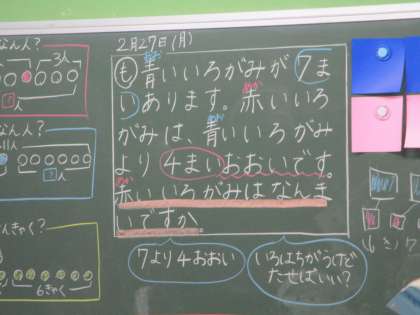 2月27日(月)
も 青いいろがみが 7ま
いあります。赤いいろ
がみは、青いいろがみ
より 4まいおおいです。
赤いいろがみはなんま
いですか。
7より4おおい
いろはちがうけど
たせばいい?
なん人?
3人
?人
なん人?
11人
?人
なんきゃく?
6きゃく